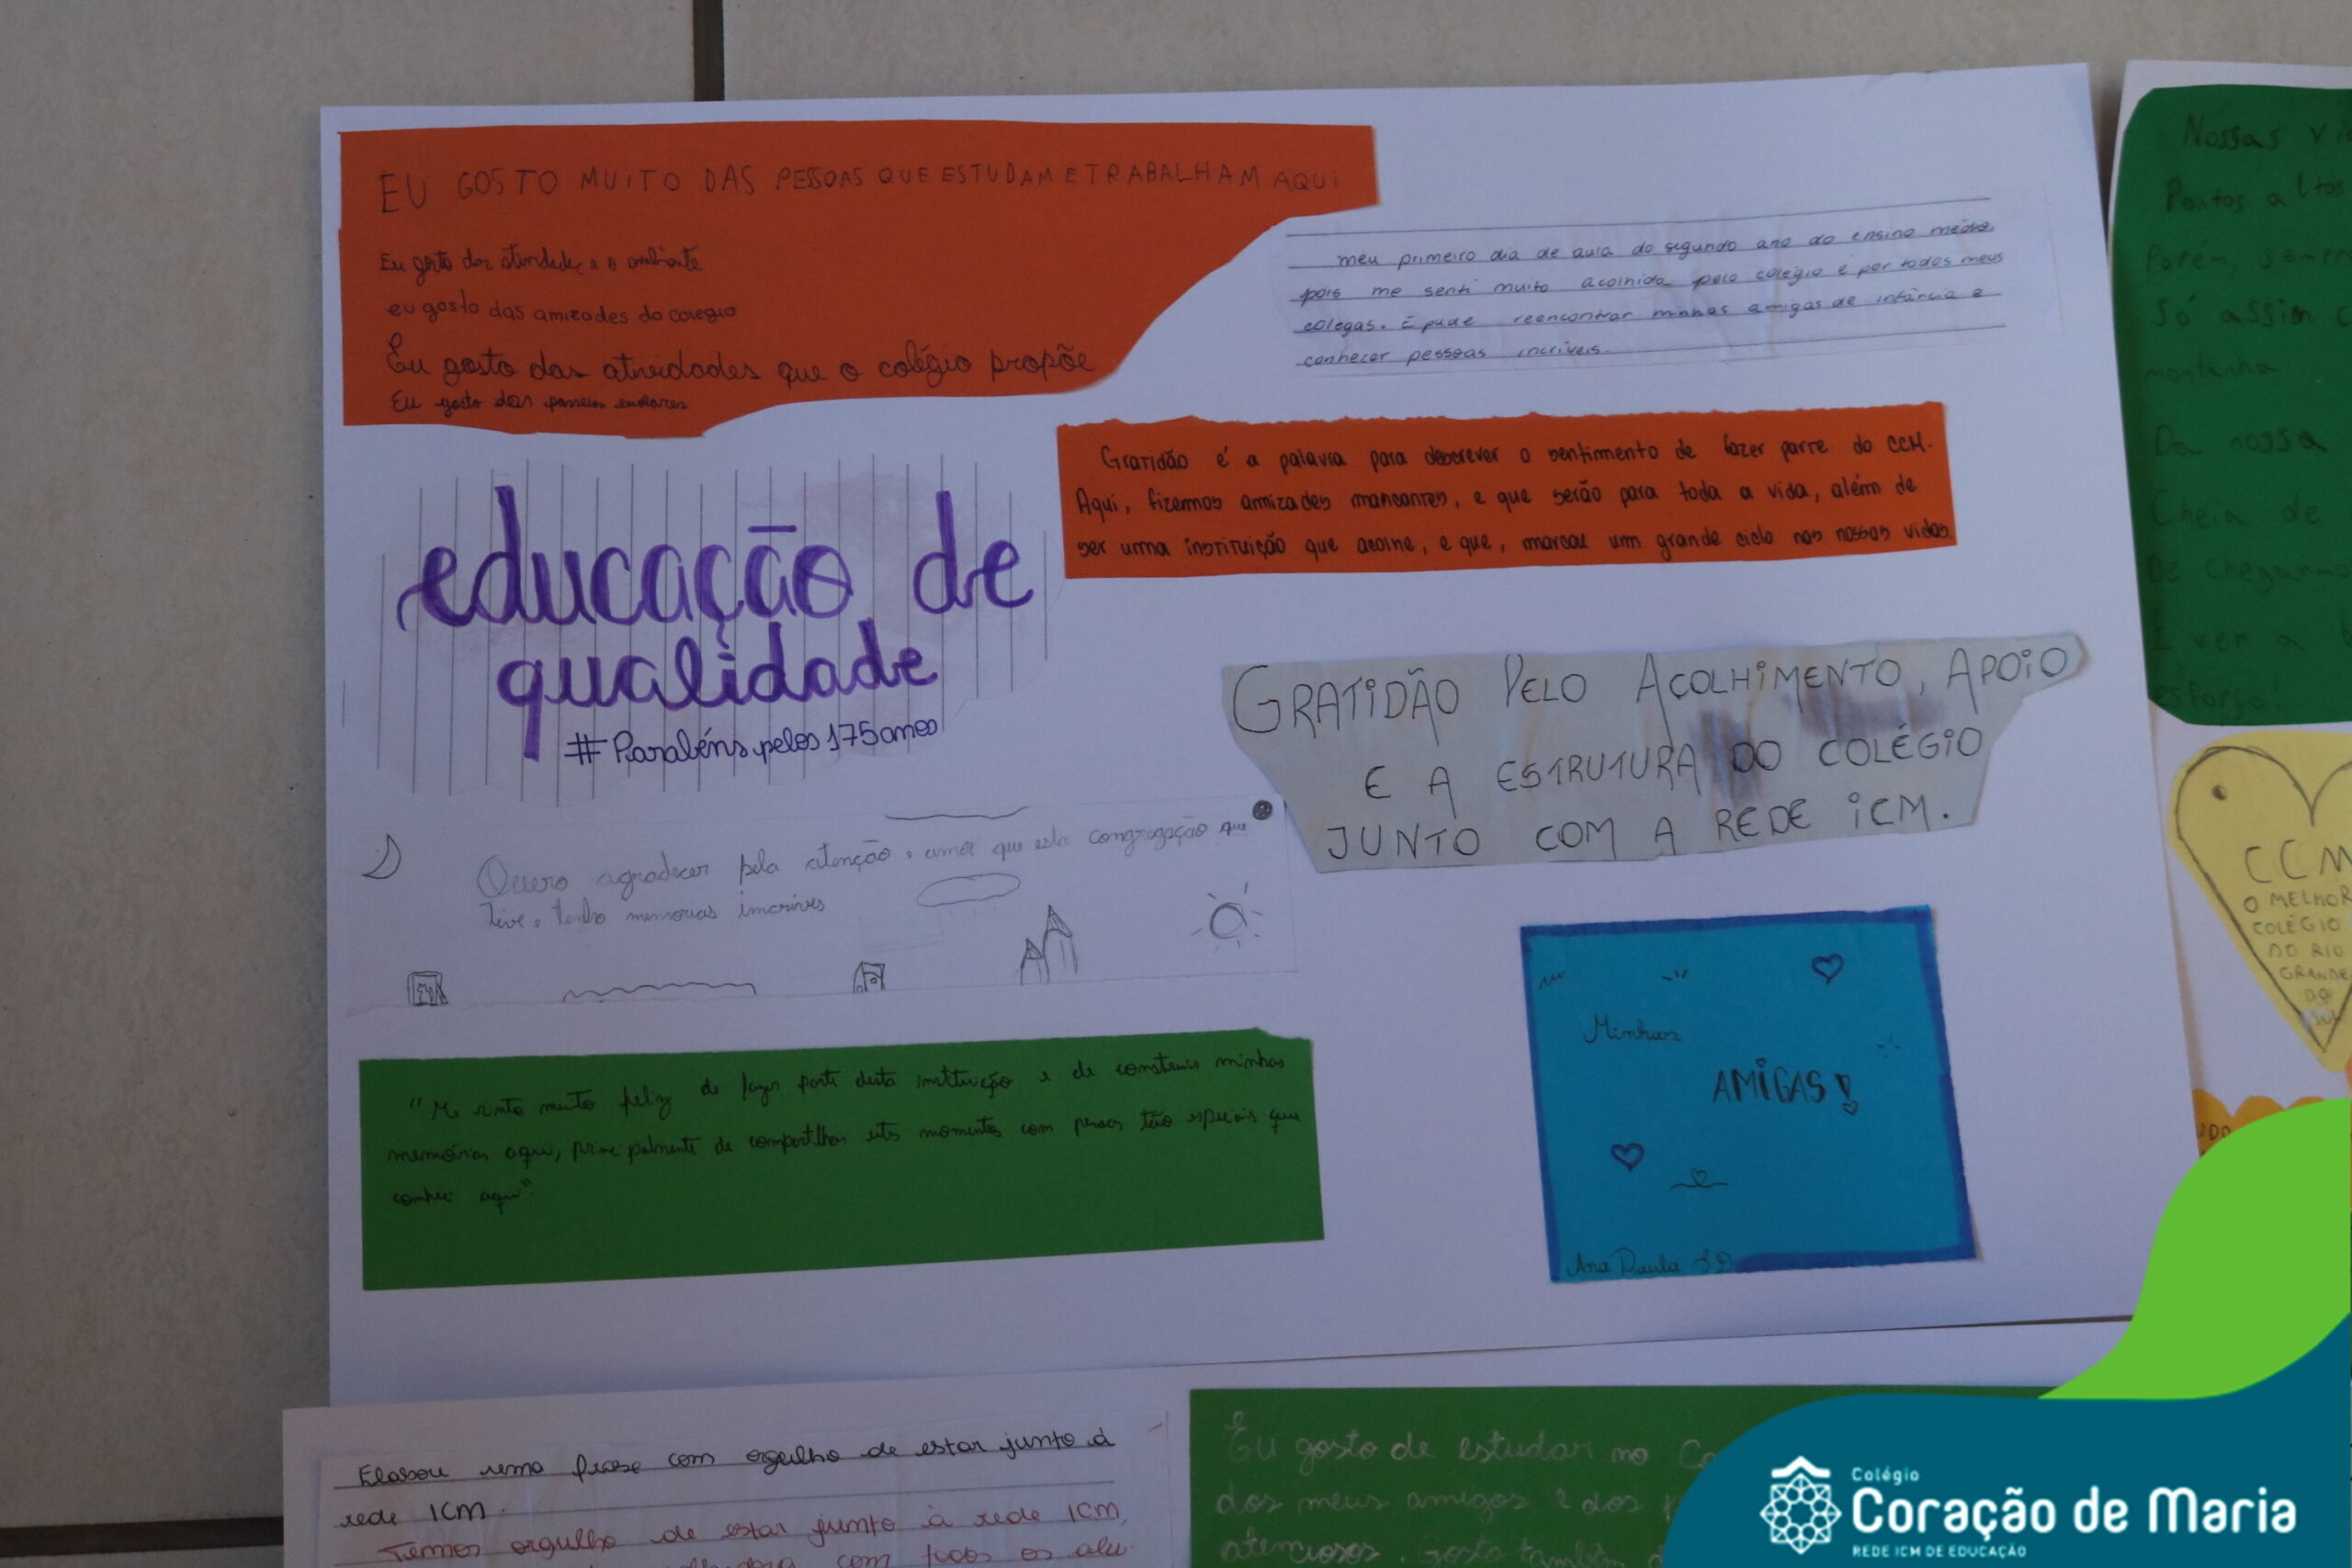 EU GOSTO MUITO DAS PESSOAS QUE ESTUDAM E TRABALHAM AQUI
Eu gosto das atividades e o ambiente
eu gosto das amizades do colégio
Eu gosto das atividades que o colégio propõe
Eu gosto dos passeios escolares
meu primeiro dia de aula do segundo ano do ensino médio,
pois me senti muito acolhida pelo colégio e por todos meus
colegas. E pude reencontrar minhas amigas de infância e
conhecer pessoas incríveis.
Gratidão é a palavra para descrever o sentimento de fazer parte do CCM.
Aqui, fizemos amizades marcantes, e que serão para toda a vida, além de
ser uma instituição que acolhe, e que, marcou um grande ciclo nas nossas vidas.
educação de
qualidade
# Parabéns pelos 175 anos
GRATIDÃO PELO ACOLHIMENTO, APOIO
E A ESTRUTURA DO COLÉGIO
JUNTO COM A REDE ICM.
Quero agradecer pela atenção e amor que esta congregação que
tive e tenho memorias incriveis
"Me sinto muito feliz de fazer parte desta instituição e de construir minhas
memórias aqui, principalmente de compartilhar estes momentos com pessoas tão especiais que
conheci aqui".
Minhas
AMIGAS!
Ana Paula
Nossas
Pontos altos
Porém, sempre
Só assim
montanha
Da nossa
Cheia de
De chegarmos
E ver a
esforço!
CCM
O MELHOR
COLÉGIO
DO RIO
GRANDE
DO
SUL
Elabou uma frase com orgulho de estar junto à
rede ICM.
Temos orgulho de estar junto à rede ICM,
com todos os alu-
Eu gosto de estudar no
dos meus amigos e dos
atenciosos. Gosto também
Colégio
Coração de Maria
REDE ICM DE EDUCAÇÃO